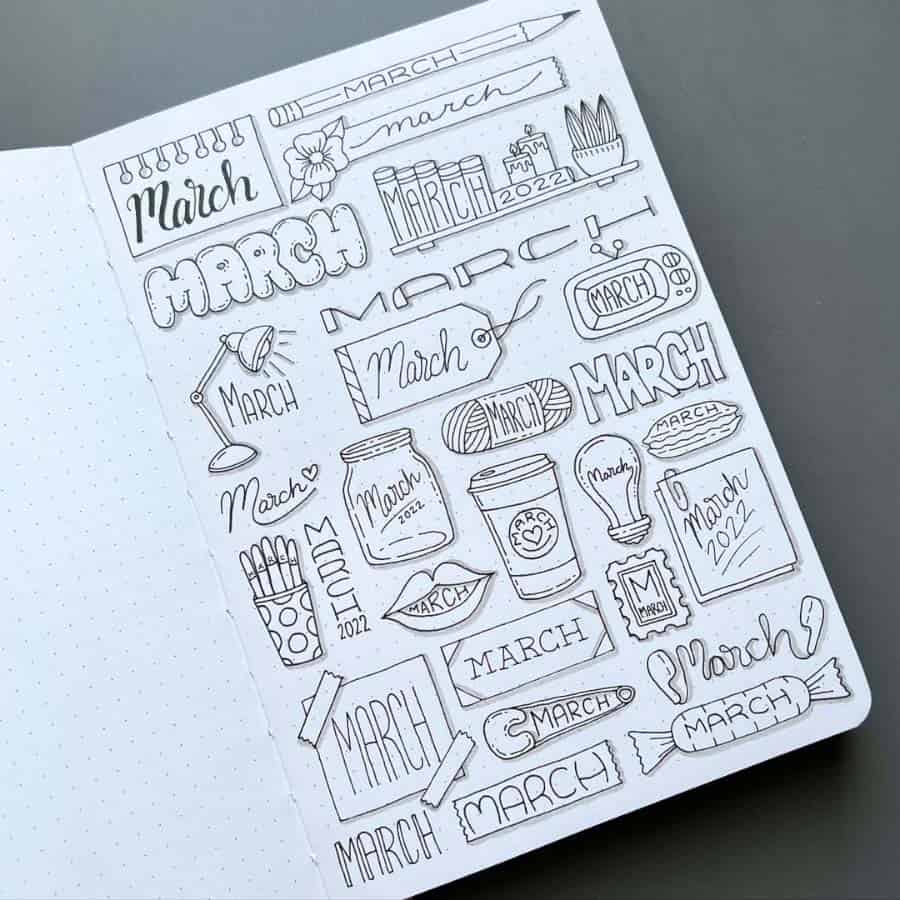 MARCH
march
March
MARCH
2022
MARCH
MARCH
MARCH
MARCH
March
MARCH
MARCH
MARCH
March
March
2022
MARCH
March
March
2022
MARCH
MARCH
2022
MARCH
M
MARCH
MARCH
March
MARCH
MARCH
MARCH
MARCH
MARCH